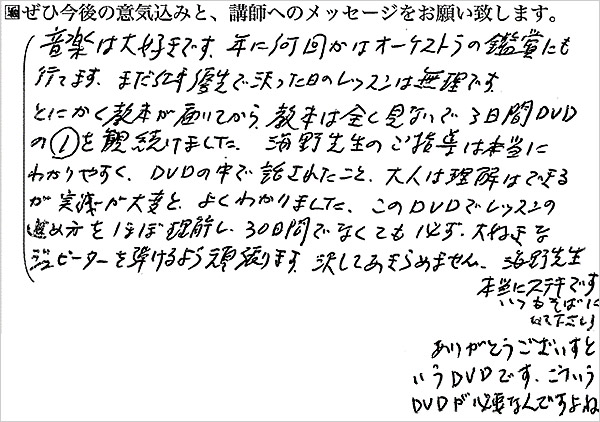 ぜひ今後の意気込みと、講師へのメッセージをお願い致します。
音楽は大好きです。年に何回かはオーケストラの鑑賞にも
行てます。まだ仕事優先で決った日のレッスンは無理です。
とにかく教本が届いてから、教本は全く見ないで3日間DVD
の①を観続けました。海野先生のご指導は本当に
わかりやすく、DVDの中で話されたこと、大人は理解はできる
が実践が大変と、よくわかりました。このDVDでレッスンの
進め方をほぼ理解し、30日間でなくても必ず、大好きな
ジュピターを弾けるよう頑張ります。決してあきらめません。海野先生
本当にステキです
いつもそばに
居て下さり
ありがとうございますと
いうDVDです。こういう
DVDが必要なんですよね